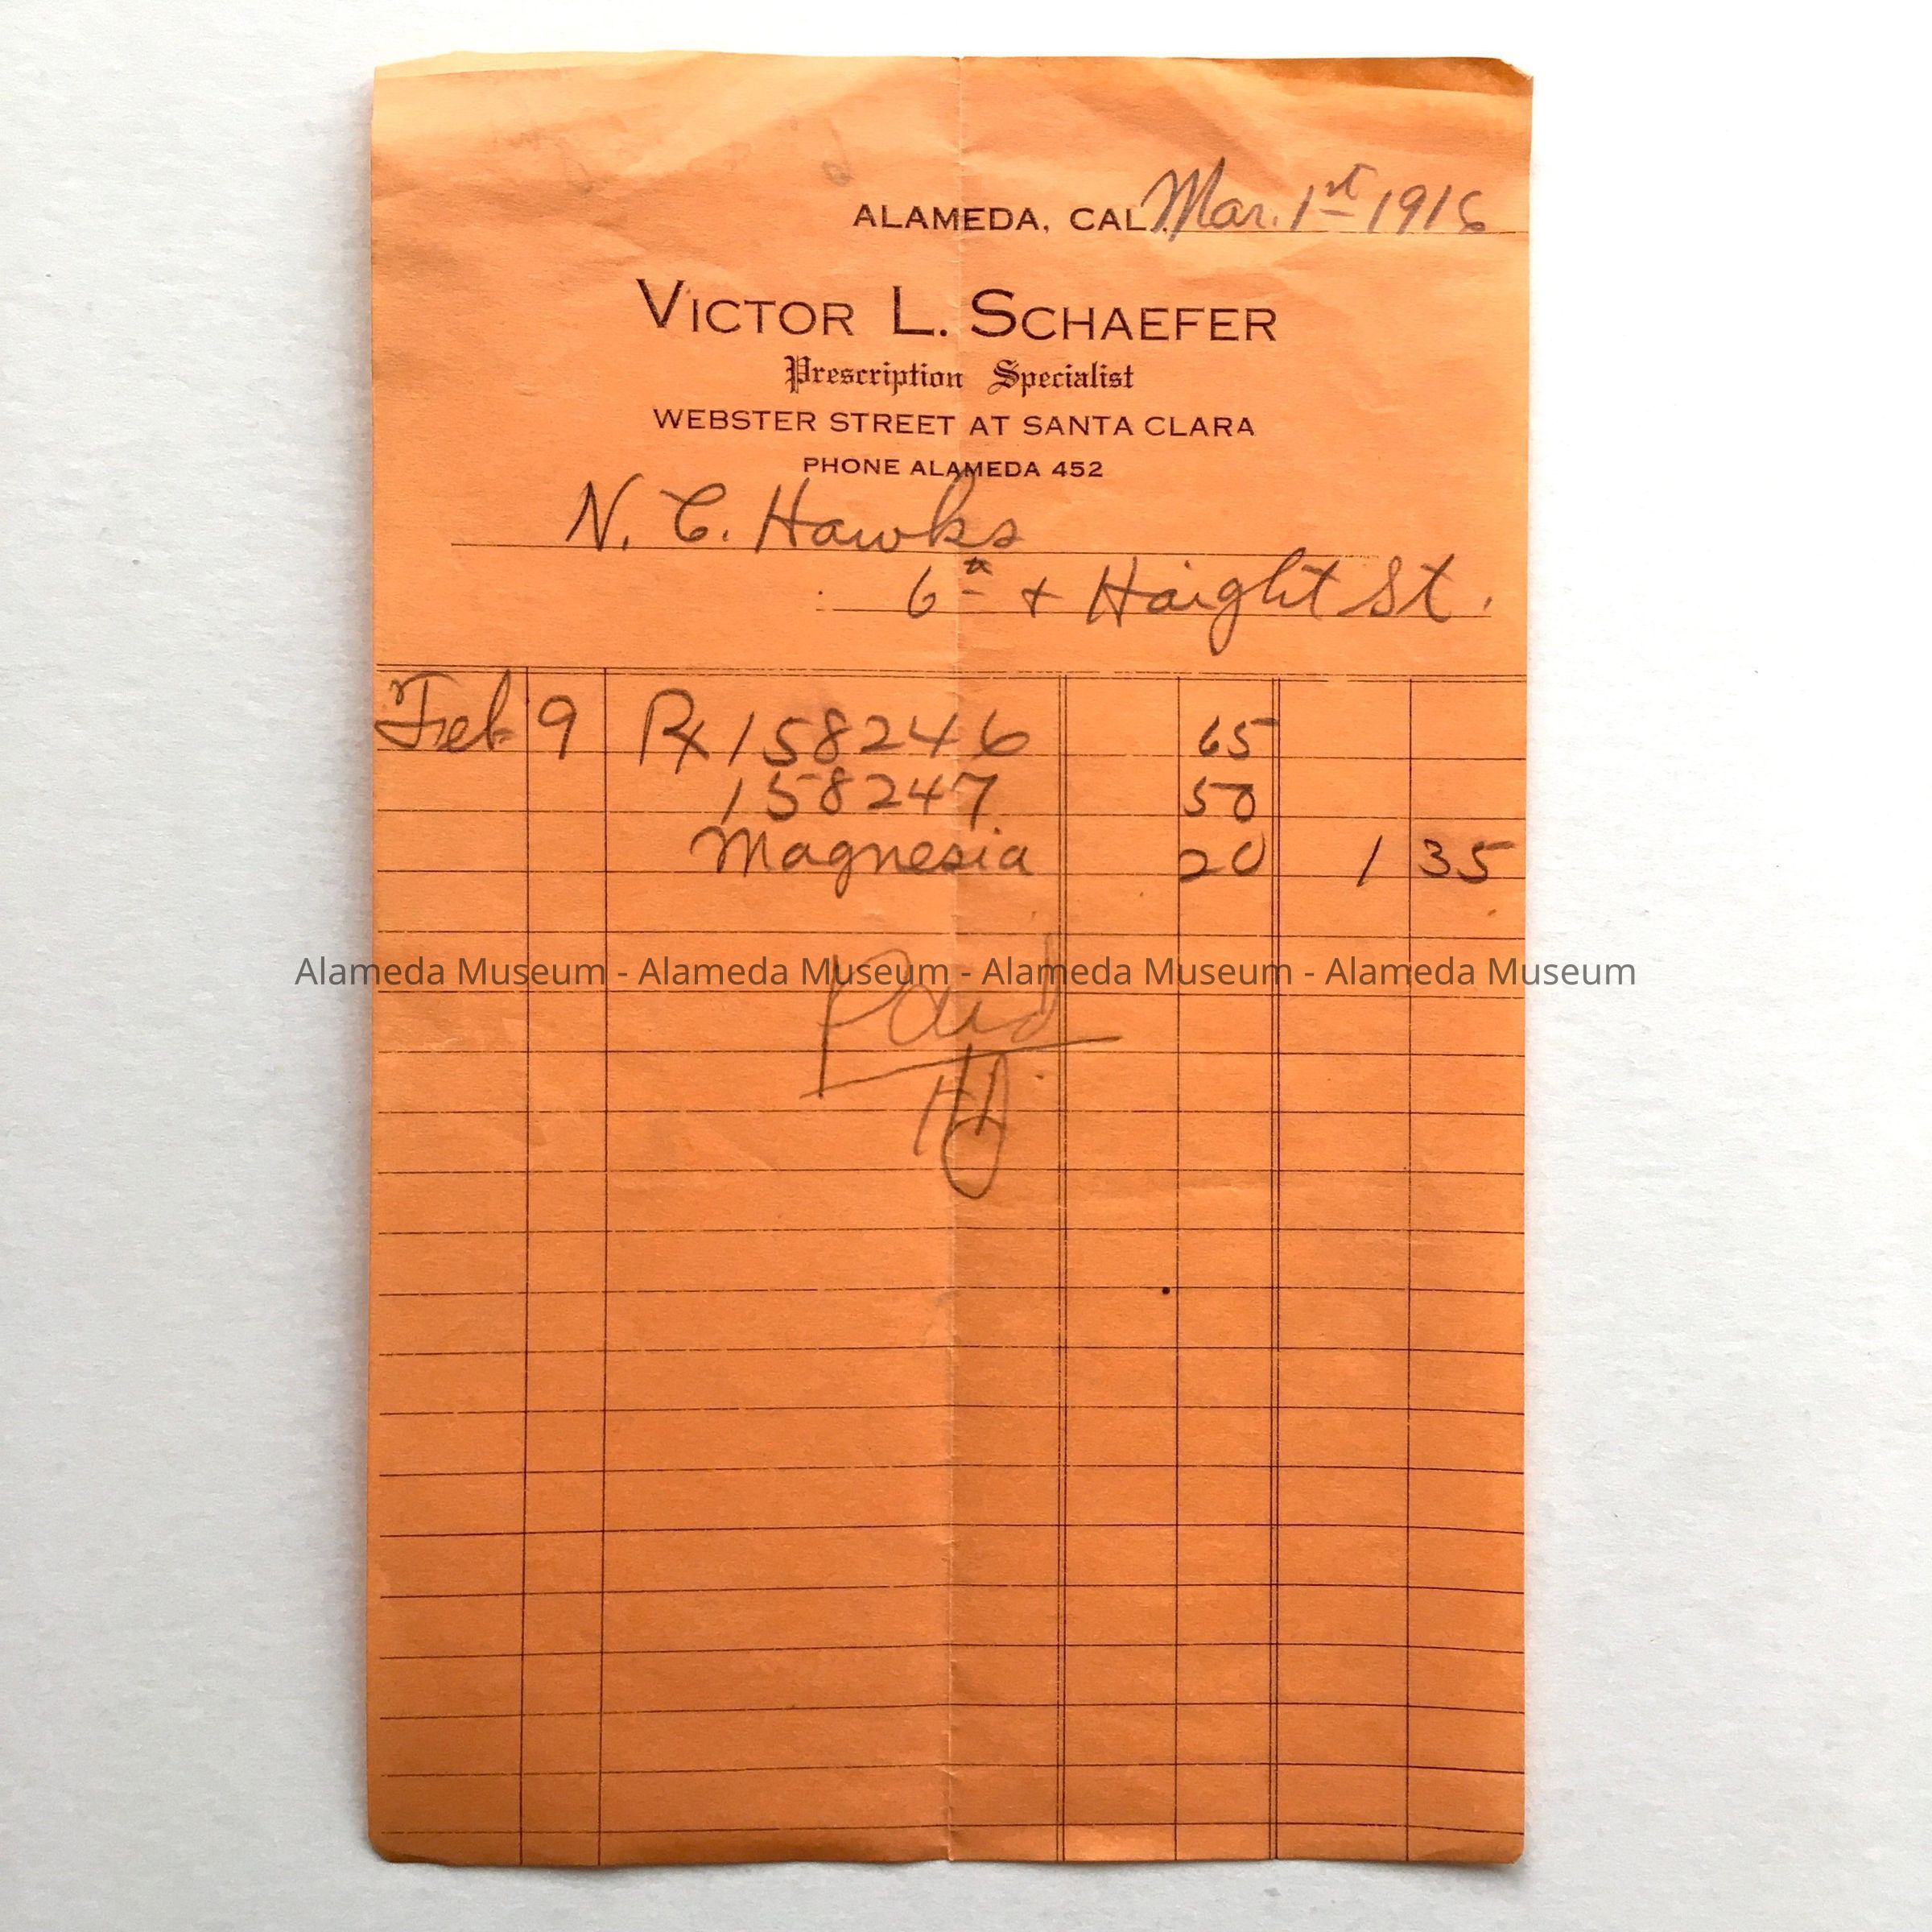 ALAMEDA, CAL. Mar. 1st 1916
VICTOR L. SCHAEFER
Prescription Specialist
WEBSTER STREET AT SANTA CLARA
PHONE ALAMEDA 452
N. C. Hawks
6th + Haight St.
Feb 9 Rx 158246 65
158247 50
Magnesia 20 1 35
Alameda Museum - Alameda Museum - Alameda Museum - Alameda Museum
Paid